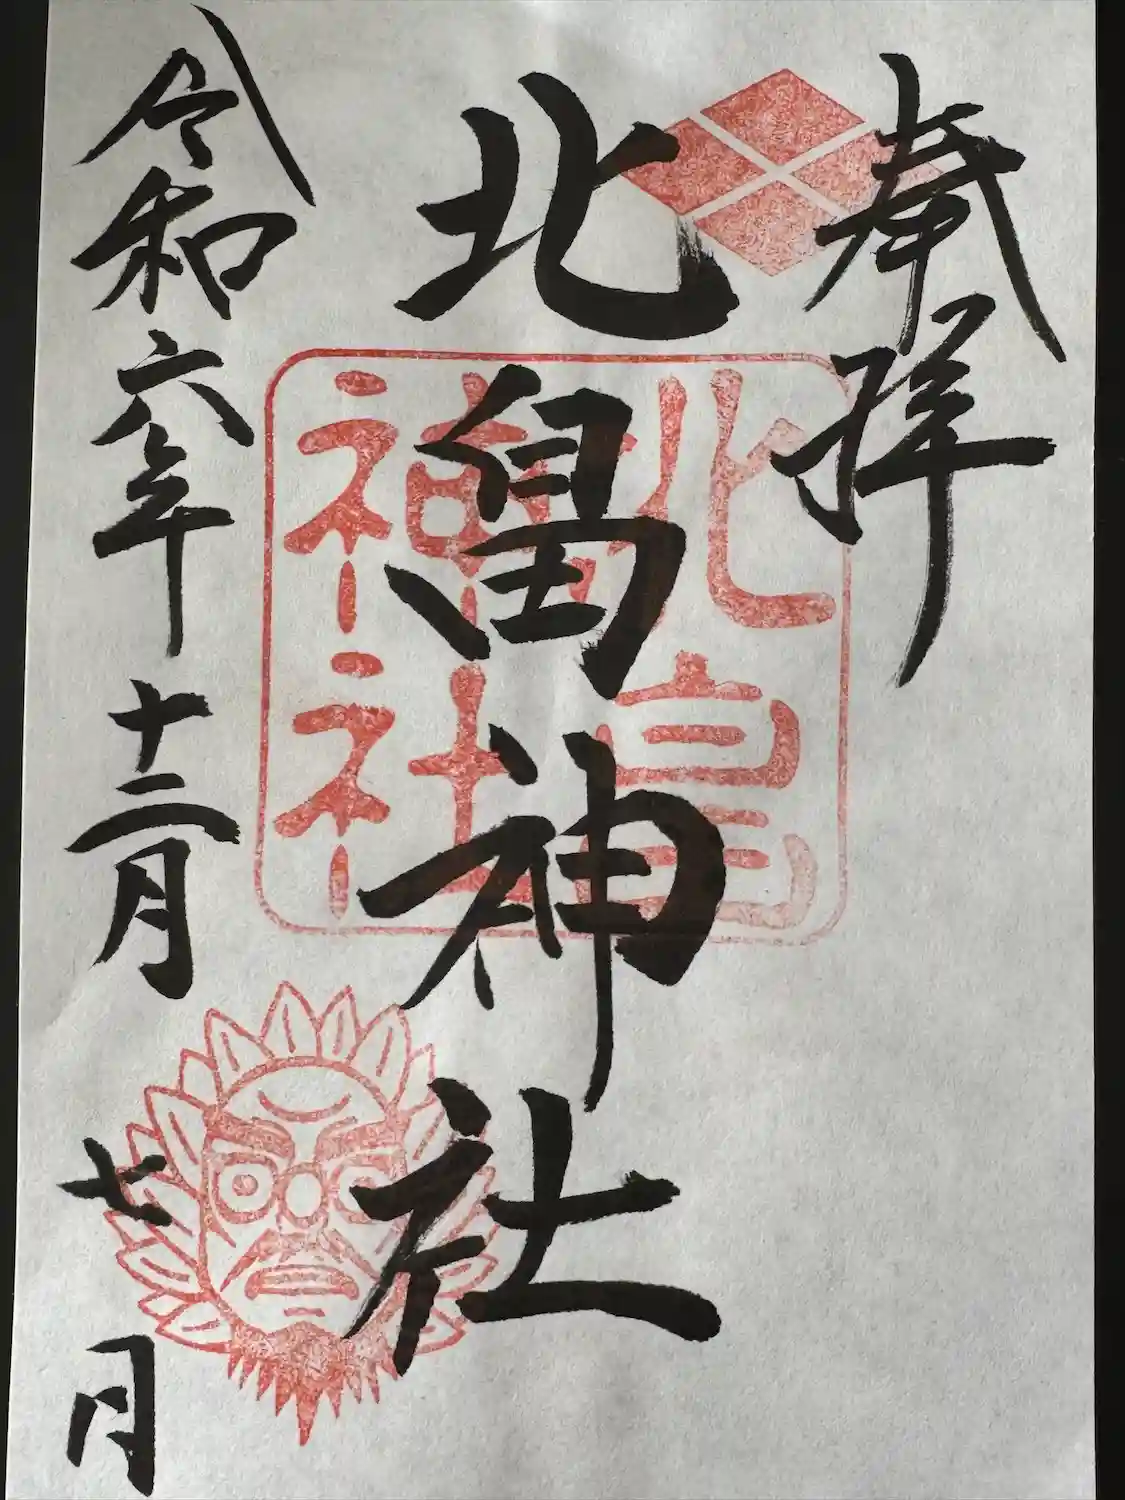 奉拝
北畠神社
北畠
神社
令和六年十二月七日